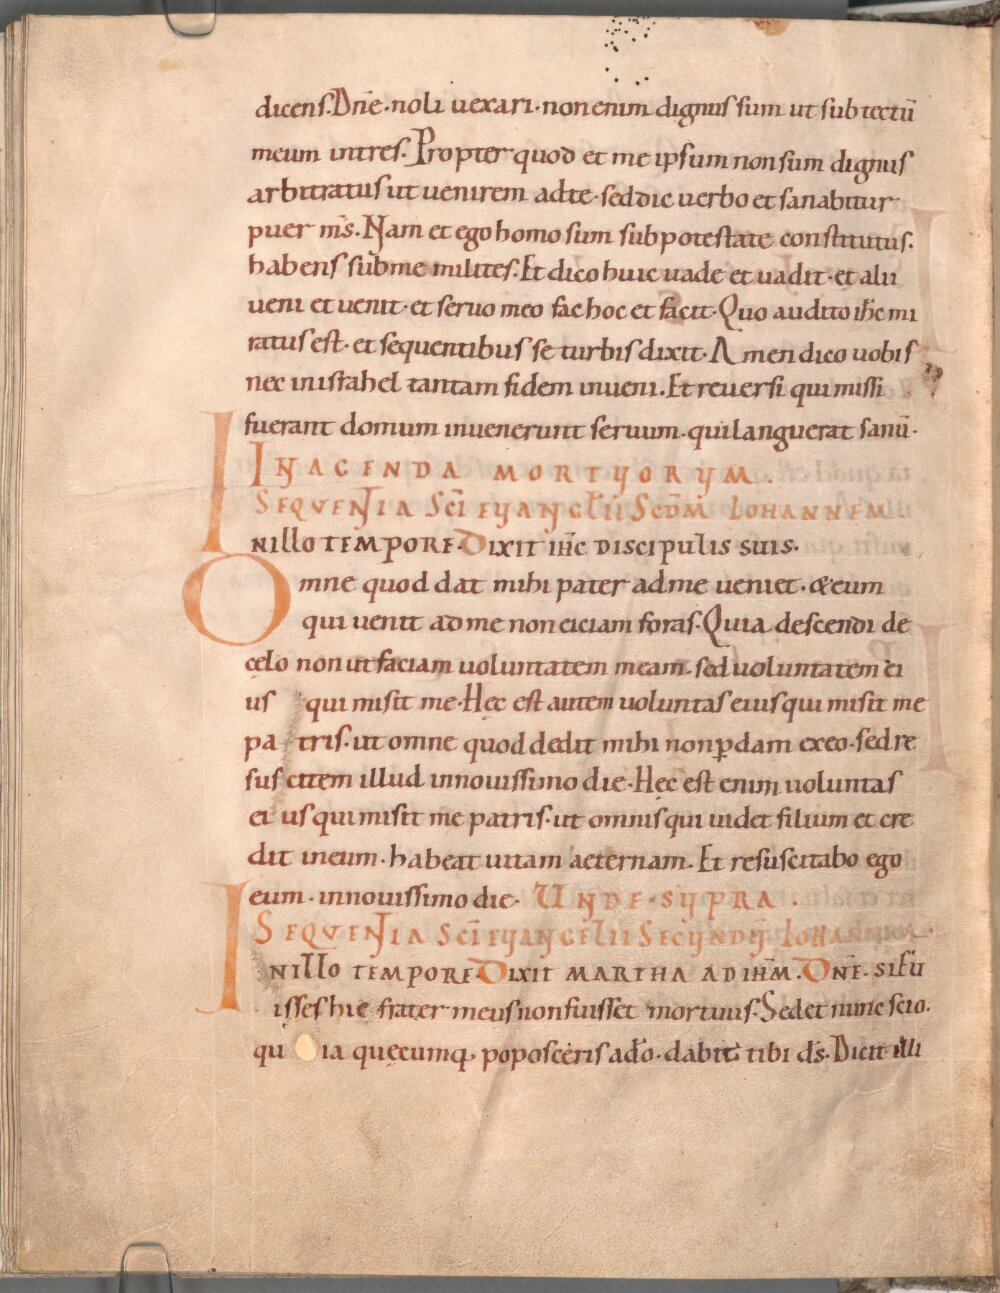 dicens. Dn̄e. noli uexari. non enim dignus sum ut sub tectū
meum intres. Propter quod et me ipsum non sum dignus
arbitratus ut uenirem ad te. sed dic uerbo et sanabitur
puer m̄s. Nam et ego homo sum sub potestate constitutus.
habens sub me milites. Et dico huic uade et uadit. et alii
ueni et uenit. et seruo meo fac hoc et facit. Quo audito ih̄c mi
ratus est. et sequentibus se turbis dixit. Amen dico uobis
nec in israhel tantam fidem inueni. Et reuersi qui missi
fuerant domum inuenerunt seruum. qui languerat sanū.
IN AGENDA MORTUORUM.
SEQUENTIA SC̄I EUANGELII SCD̄M IOHANNEM
IN ILLO TEMPORE. DIXIT IH̄C DISCIPULIS SUIS.
Omne quod dat mihi pater ad me ueniet. & eum
qui uenit ad me non eiciam foras. Quia descendi de
celo non ut faciam uoluntatem meam. sed uoluntatem ei
us qui misit me. Hęc est autem uoluntas eius qui misit me
patris. ut omne quod dedit mihi non ꝑdam ex eo. sed re
suscitem illud in nouissimo die. Hęc est enim uoluntas
eius qui misit me patris. ut omnis qui uidet filium et cre
dit in eum. habeat uitam aeternam. Et resuscitabo ego
eum. in nouissimo die. UNDE SUPRA.
SEQUENTIA SC̄I EUANGELII SECUNDŪ IOHANNEM
IN ILLO TEMPORE. DIXIT MARTHA AD IH̄M. DN̄E. SI FU
isses hic frater meus non fuisset mortuus. Sed et nunc scio.
quia quęcumq; poposceris a d̄o. dabit tibi d̄s. Dicit illi